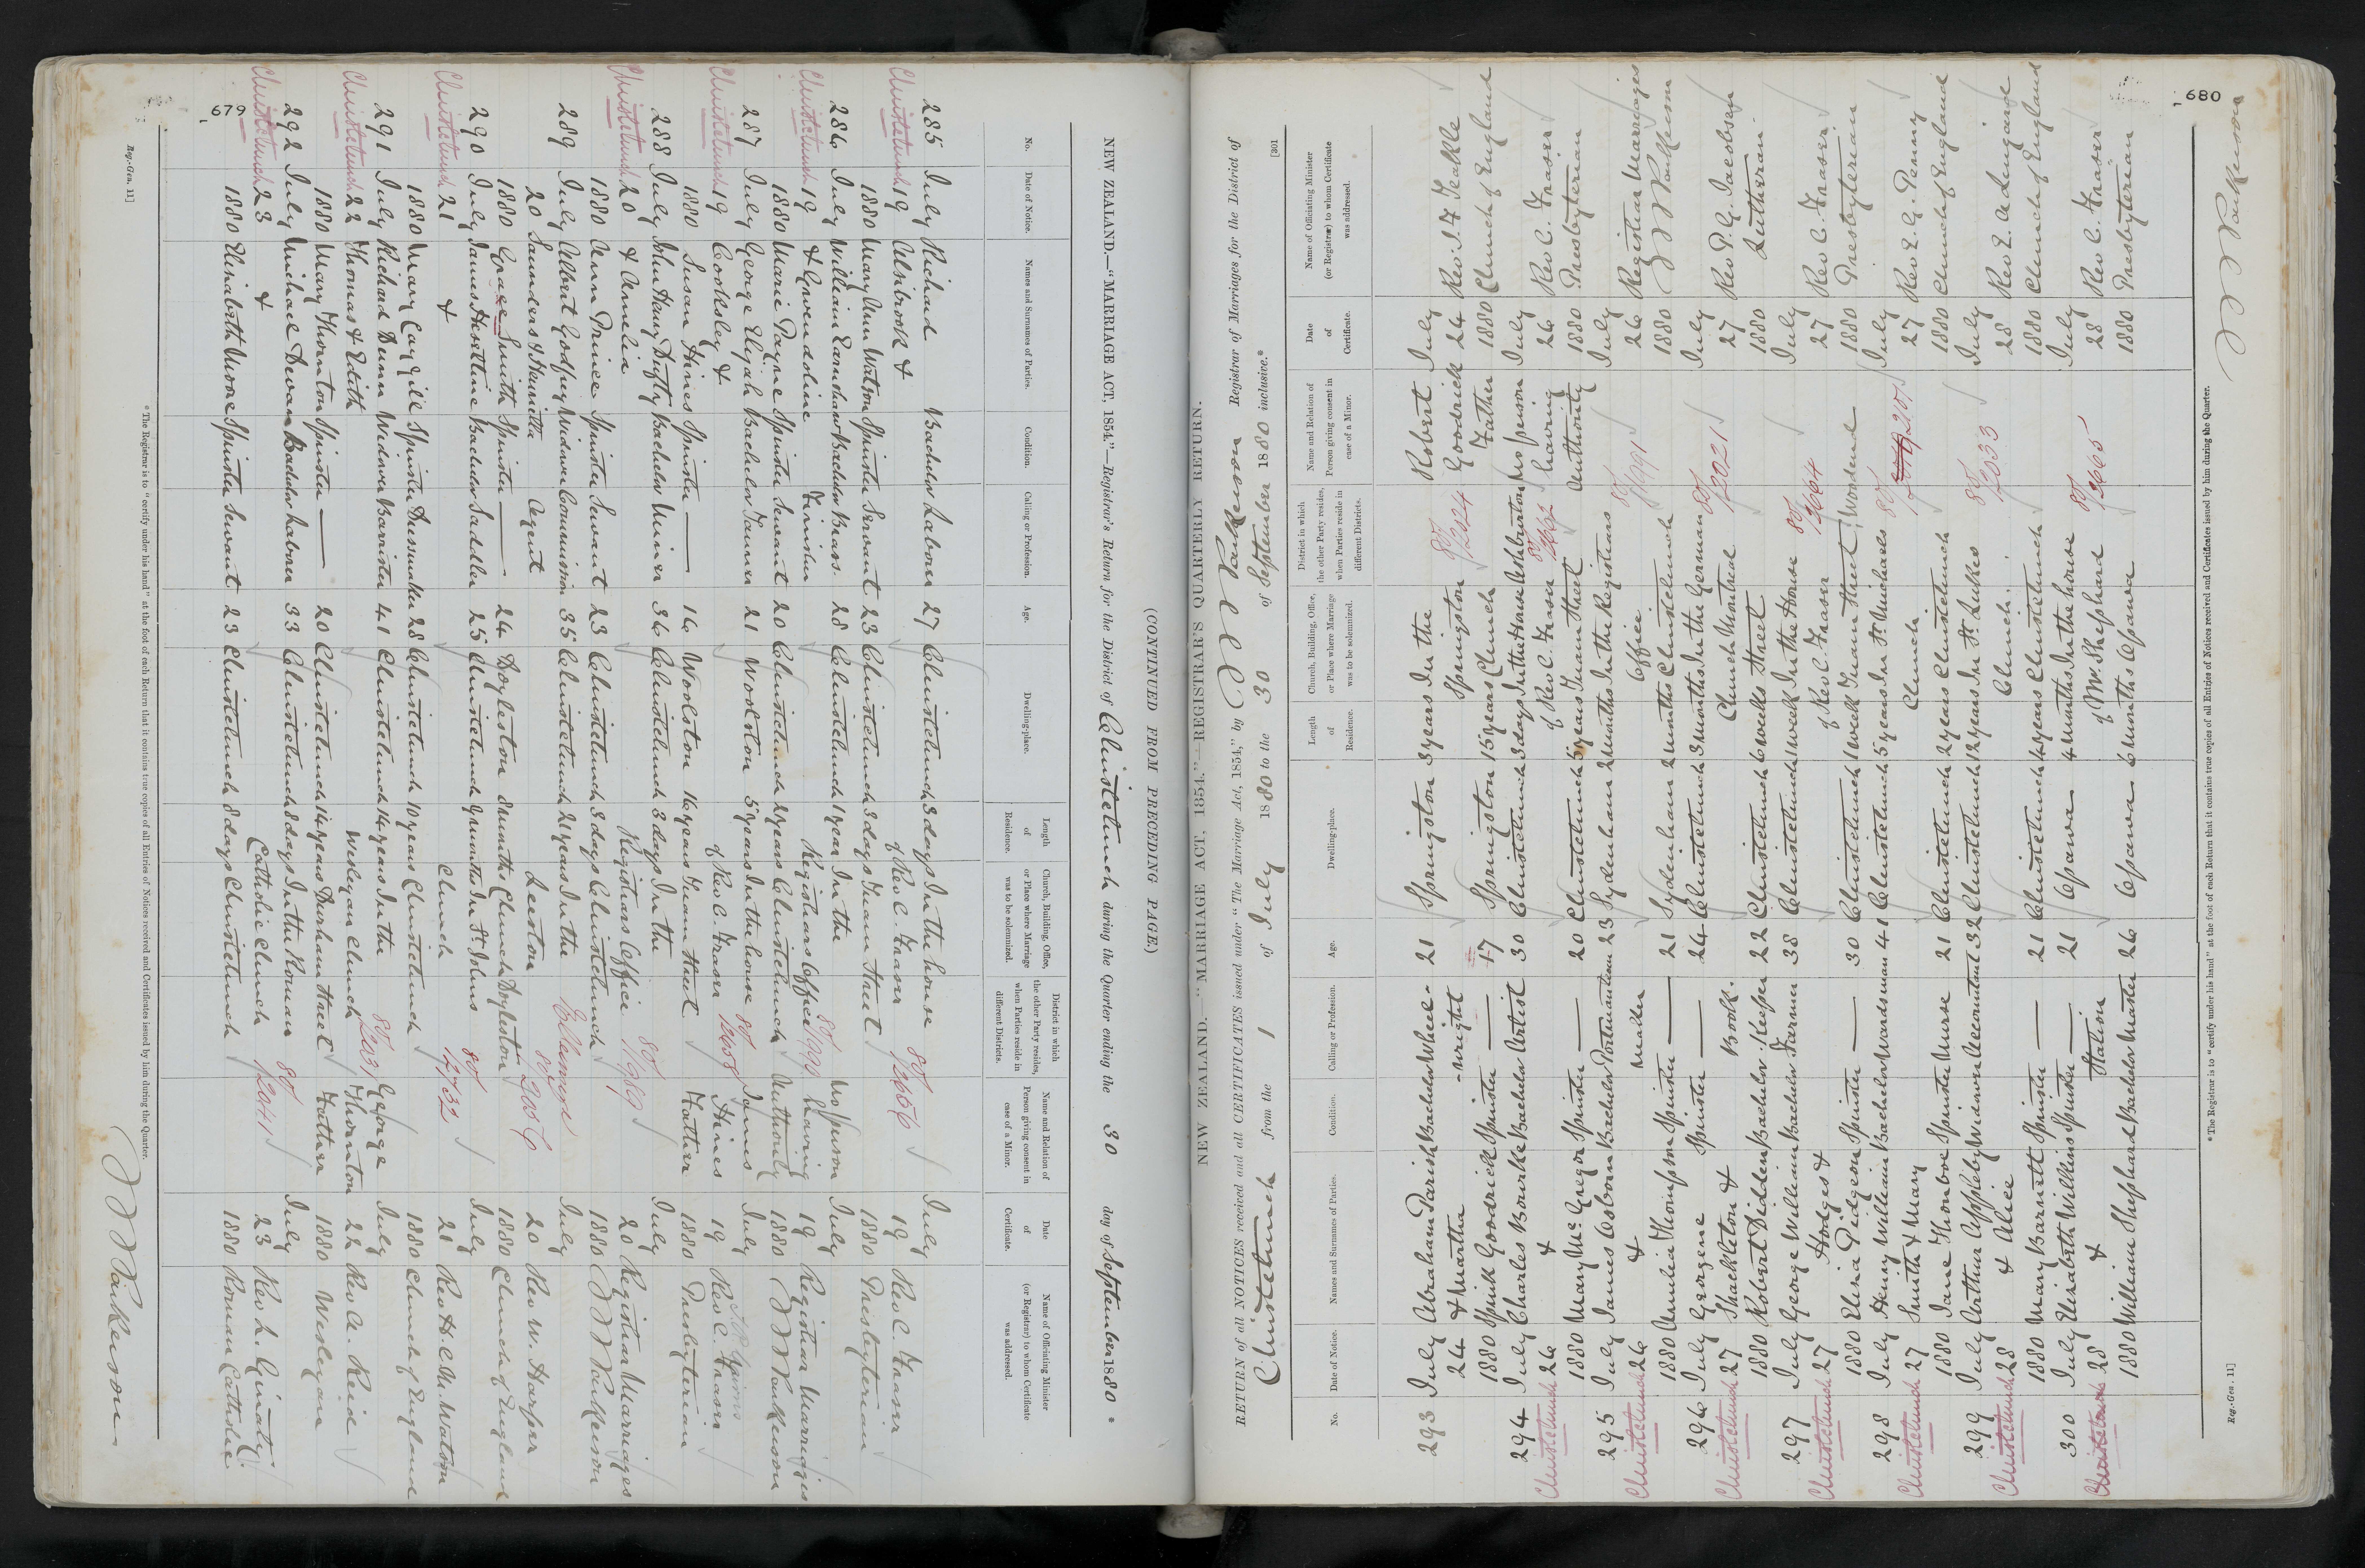 679
(CONTINUED FROM PRECEDING PAGE.)
NEW ZEALAND.—"MARRIAGE ACT, 1854."—Registrar's Return for the District of Christchurch during the Quarter ending the 30 day of September 1880 *
No. Date of Notice. Names and Surnames of Parties. Condition. Calling or Profession. Age. Dwelling-place. Length of Residence. Church, Building, Office, or Place where Marriage was to be solemnized. District in which the other Party resides, when Parties reside in different Districts. Name and Relation of Person giving consent in case of a Minor. Date of Certificate. Name of Officiating Minister (or Registrar) to whom Certificate was addressed.
285 July Richard Bachelor Laborer 27 Christchurch 3 days In the house July
Christchurch 19 Alsibrook & of Rev C. Fraser 80/2656 19 Rev C. Fraser
1880 Mary Ann Watson Spinster Servant 23 Christchurch 3 days Tuam Street 1880 Presbyterian
286 July William Earnshaw Bachelor Brass 28 Christchurch 1 year In the No person July
Christchurch 19 & Gwendoline Finisher Registrars Office having 19 Registrar Marriages
1880 Marie Payne Spinster Servant 20 Christchurch 2 years Christchurch Authority 1880
287 July George Elijah Bachelor Farmer 21 Woolston 5 years In the house James July
Christchurch 19 Cooksley & of Rev. C. Fraser 80/2658 Hines 19 Rev C. Fraser
1880 Susan Hines Spinster — 16 Woolston 16 years Tuam Street Father 1880 Presbyterian
288 July John Henry Bachelor Miner 36 Christchurch 3 days In the July
Christchurch 20 & Amelia Registrars Office 80/1989 20 Registrar Marriages
1880 Ann Prince Spinster Servant 23 Christchurch 3 days Christchurch 1880
289 July Albert Godfrey Widower Commission 35 Christchurch 21 years In the Ellesmere July
20 Saunders & Henrietta Agent Leeston 20 Rev W. Harper
1880 Grace Smith Spinster — 24 Doyleston 8 months Church Doyleston 1880 Church of England
290 July James Heseltine Bachelor Saddler 25 Christchurch 9 months In St Johns July
Christchurch 21 & Church 80/2732 21 Rev H. C. M. Watson
1880 Mary Cargill Spinster Dressmaker 28 Christchurch 10 years Christchurch 1880 Church of England
291 July Richard Dunn Widower Barrister 41 Christchurch 14 years In the George July
Christchurch 22 Thomas & Edith Wesleyan Church Thornton 22 Rev A. Reid
1880 Mary Thornton Spinster — 20 Christchurch 14 years Durham Street Father 1880 Wesleyan
292 July Michael Devan Bachelor Laborer 33 Christchurch 8 days In the Roman July
Christchurch 23 & Catholic Church 80/2041 23 Rev L. Ginaty
1880 Elizabeth Moore Spinster Servant 23 Christchurch 8 days Christchurch 1880 Roman Catholic
* The Registrar is to "certify under his hand" at the foot of each Return that it contains true copies of all Entries of Notices received and Certificates issued by him during the Quarter.
Reg.-Gen. 11]
680
[301
NEW ZEALAND.—"MARRIAGE ACT, 1854."—REGISTRAR'S QUARTERLY RETURN.
RETURN of all NOTICES received and all CERTIFICATES issued under "The Marriage Act, 1854," by Parkerson Registrar of Marriages for the District of
Christchurch from the 1 of July 1880 to the 30 of September 1880 inclusive.*
No. Date of Notice. Names and Surnames of Parties. Condition. Calling or Profession. Age. Dwelling-place. Length of Residence. Church, Building, Office, or Place where Marriage was to be solemnized. District in which the other Party resides, when Parties reside in different Districts. Name and Relation of Person giving consent in case of a Minor. Date of Certificate. Name of Officiating Minister (or Registrar) to whom Certificate was addressed.
293 July Abraham Parish Bachelor Wheel- 21 Springston 3 years In the Robert July
24 & Martha -wright Springston Goodrick 24 Rev. J. F. Teakle
1880 Spink Goodrick Spinster — 17 Springston 15 years Church Father 1880 Church of England
294 July Charles Bourke Bachelor Artist 30 Christchurch 3 days In the House Ashburton No person July
Christchurch 26 & of Rev C. Fraser 80/2662 having 26 Rev C. Fraser
1880 Mary McGregor Spinster — 20 Christchurch 5 years Tuam Street Authority 1880 Presbyterian
295 July James Osborn Bachelor Portmanteau 23 Sydenham 2 months In the Registrars July
Christchurch 26 & Maker Office 80/1991 26 Registrar Marriages
1880 Amelia Thompson Spinster — 21 Sydenham 2 months Christchurch 1880
296 July Georgene Spinster — 24 Christchurch 3 months In the German July
Christchurch 27 Shackleton & Book- Church Montreal 80/2021 27 Rev P. G. Jacobsen
1880 Robert Didden Bachelor -Keeper 22 Christchurch 6 weeks Street 1880 Lutheran
297 July George William Bachelor Farmer 38 Christchurch 1 week In the House July
Christchurch 27 Hodges & of Rev C. Fraser 80/2664 27 Rev C. Fraser
1880 Eliza Pidgeon Spinster — 30 Christchurch 1 week Tuam Street Woodend 1880 Presbyterian
298 July Henry William Bachelor Wardsman 41 Christchurch 5 years In St Michaels July
Christchurch 27 Smith & Mary Church 27 Rev E. G. Penny
1880 Jane Thomboe Spinster Nurse 21 Christchurch 2 years Christchurch 1880 Church of England
299 July Arthur Appleby Widower Accountant 32 Christchurch 12 years In St Lukes July
Christchurch 28 & Alice Church. 80/2033 28 Rev E. A. Lingard
1880 Mary Barnett Spinster — 21 Christchurch 4 years Christchurch 1880 Church of England
300 July Elizabeth Wilkins Spinster — 21 Opawa 4 months In the house July
Christchurch 28 & Station of Mr. Shephard 80/2665 28 Rev C. Fraser
1880 William Shephard Bachelor Master 26 Opawa 6 months Opawa 1880 Presbyterian
* The Registrar is to "certify under his hand" at the foot of each Return that it contains true copies of all Entries of Notices received and Certificates issued by him during the Quarter.
Reg.-Gen. 11]